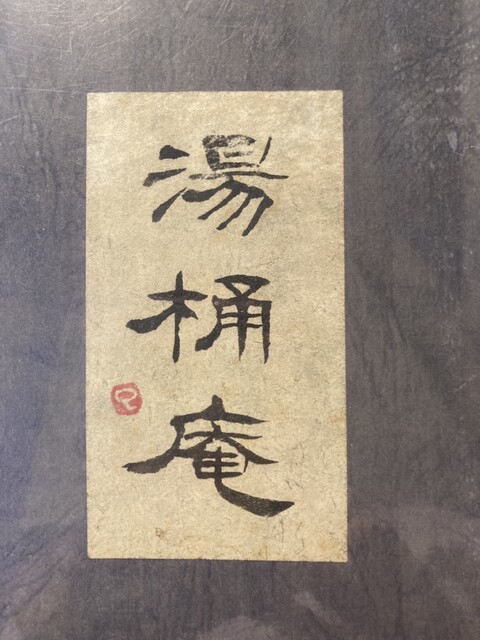 湯桶庵